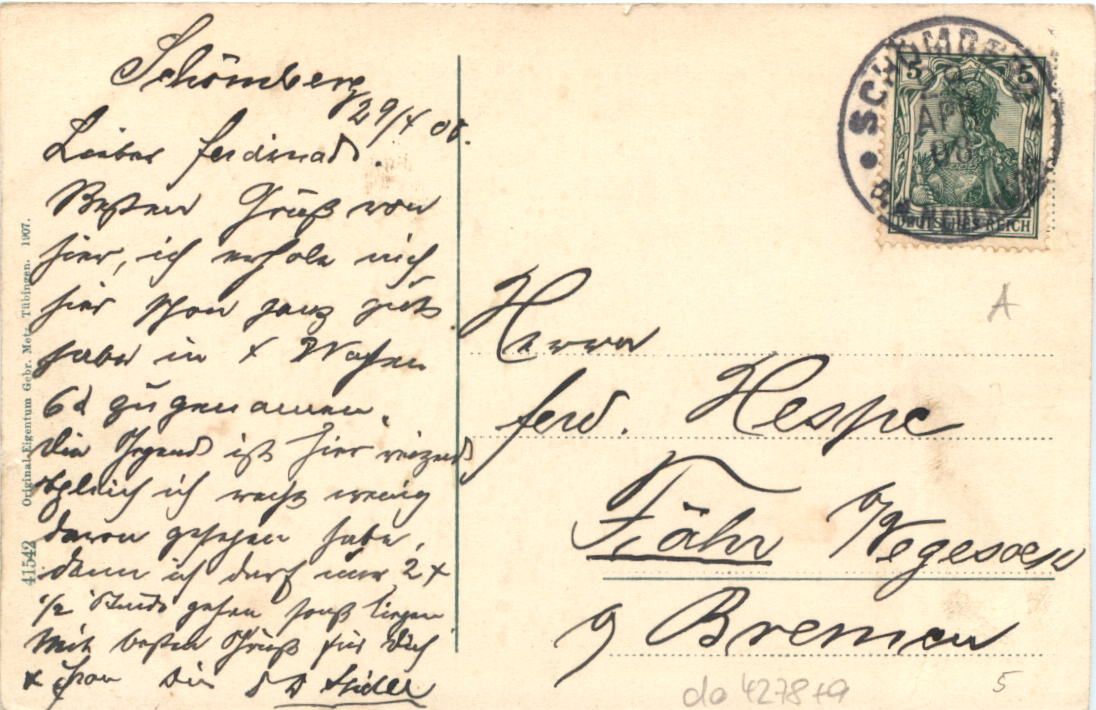 Schömberg
29/4 08.
Lieber Ferdinad.
Besten Gruß von
hier, ich erhole mich
hier schon ganz gut
habe in 4 Wochen
6 d zugenommen.
Die Gegend ist hier reizend
obgleich ich recht wenig
davon gesehen habe,
denn ich darf nur 2 x
1/2 Stunde gehen sonst liegen
Mit besten Gruß für Dich
x Frau Dein
41542 Original-Eigentum Gebr. Metz, Tübingen. 1907.
SCHÖMBERG
29
APR
08
5 5
DEUTSCHES REICH
A
Herrn
Ferd. Hespe
Fähr b/Vegesack
b/ Bremen
do 4278+9
5